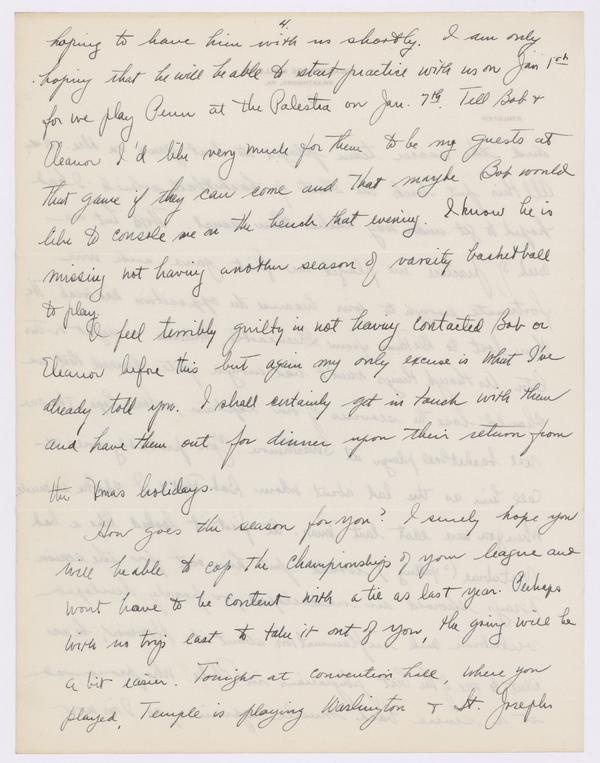 4.
hoping to have him with us shortly. I am only
hoping that he will be able to start practice with us on Jan 1st
for we play Penn at the Palestra on Jan. 7th. Tell Bob &
Eleanor I'd like very much for them to be my guests at
that game if they can come and that maybe Bob would
like to console me on the bench that evening. I know he is
missing not having another season of varsity basketball
to play.
I feel terribly guilty in not having contacted Bob or
Eleanor before this but again my only excuse is what I've
already told you. I shall certainly get in touch with them
and have them out for dinner upon their return from
the Xmas holidays.
How goes the season for you? I surely hope you
will be able to cop the championship of your league and
wont have to be content with a tie as last year. Perhaps
with no trips east to take it out of you, the going will be
a bit easier. Tonight at convention hall, where you
played, Temple is playing Washington & St. Josephs